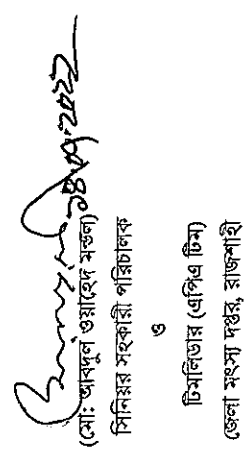 ১৪.০৭.২০২২
(মো: আবদুল ওয়াহেদ মন্ডল)
সিনিয়র সহকারী পরিচালক
ও
টিমলিডার (এপিএ টিম)
জেলা মৎস্য দপ্তর, রাজশাহী